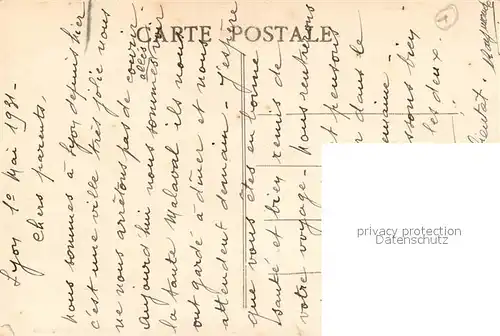 CARTE POSTALE
Lyon 1º Mai 1931-
Chers parents,
nous sommes à Lyon depuis hier
c'est une ville très jolie nous
ne nous arrêtons pas de courir
Aujourd'hui nous sommes allés voir
la tante Malaval ils nous
ont gardé à dîner et nous
attendent demain - J'espère
que vous êtes en bonne
santé et bien remis de
votre voyage - nous rentrerons
et pensons
dans le
semaine -
bien
les deux
privacy protection
Datenschutz